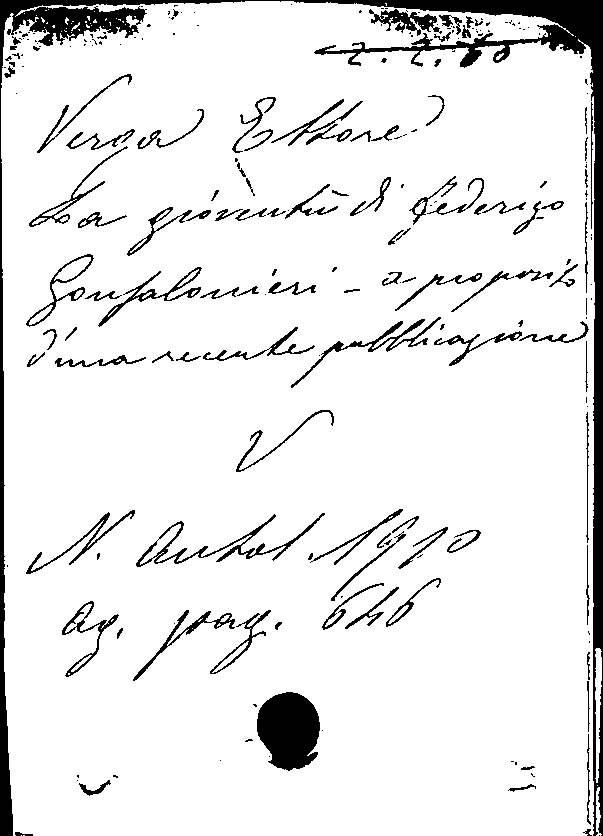 2. 2. 60
Verga Ettore
La gioventù di Federigo
Gonfalonieri - a proposito
d'una recente pubblicazione
V
N. Antol. 1910
ag. pag. 646